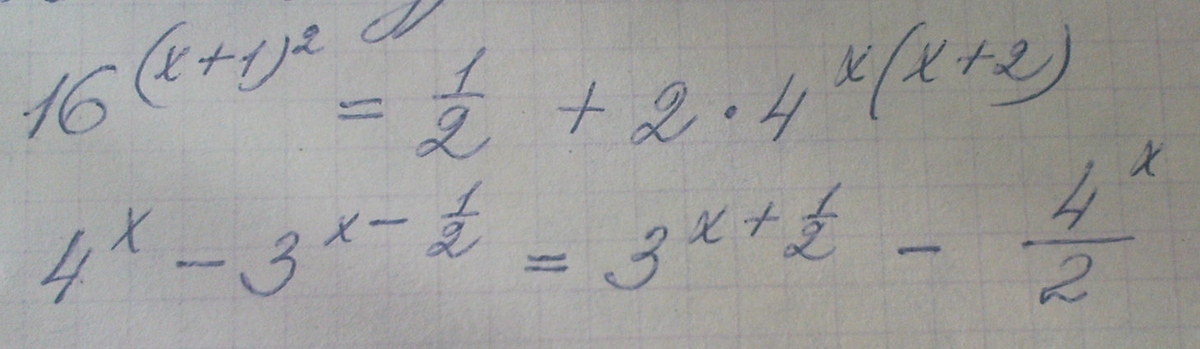 16^{(x+1)^2} = \frac{1}{2} + 2 \cdot 4^{x(x+2)}
4^x - 3^{x - \frac{1}{2}} = 3^{x + \frac{1}{2}} - \frac{4^x}{2}